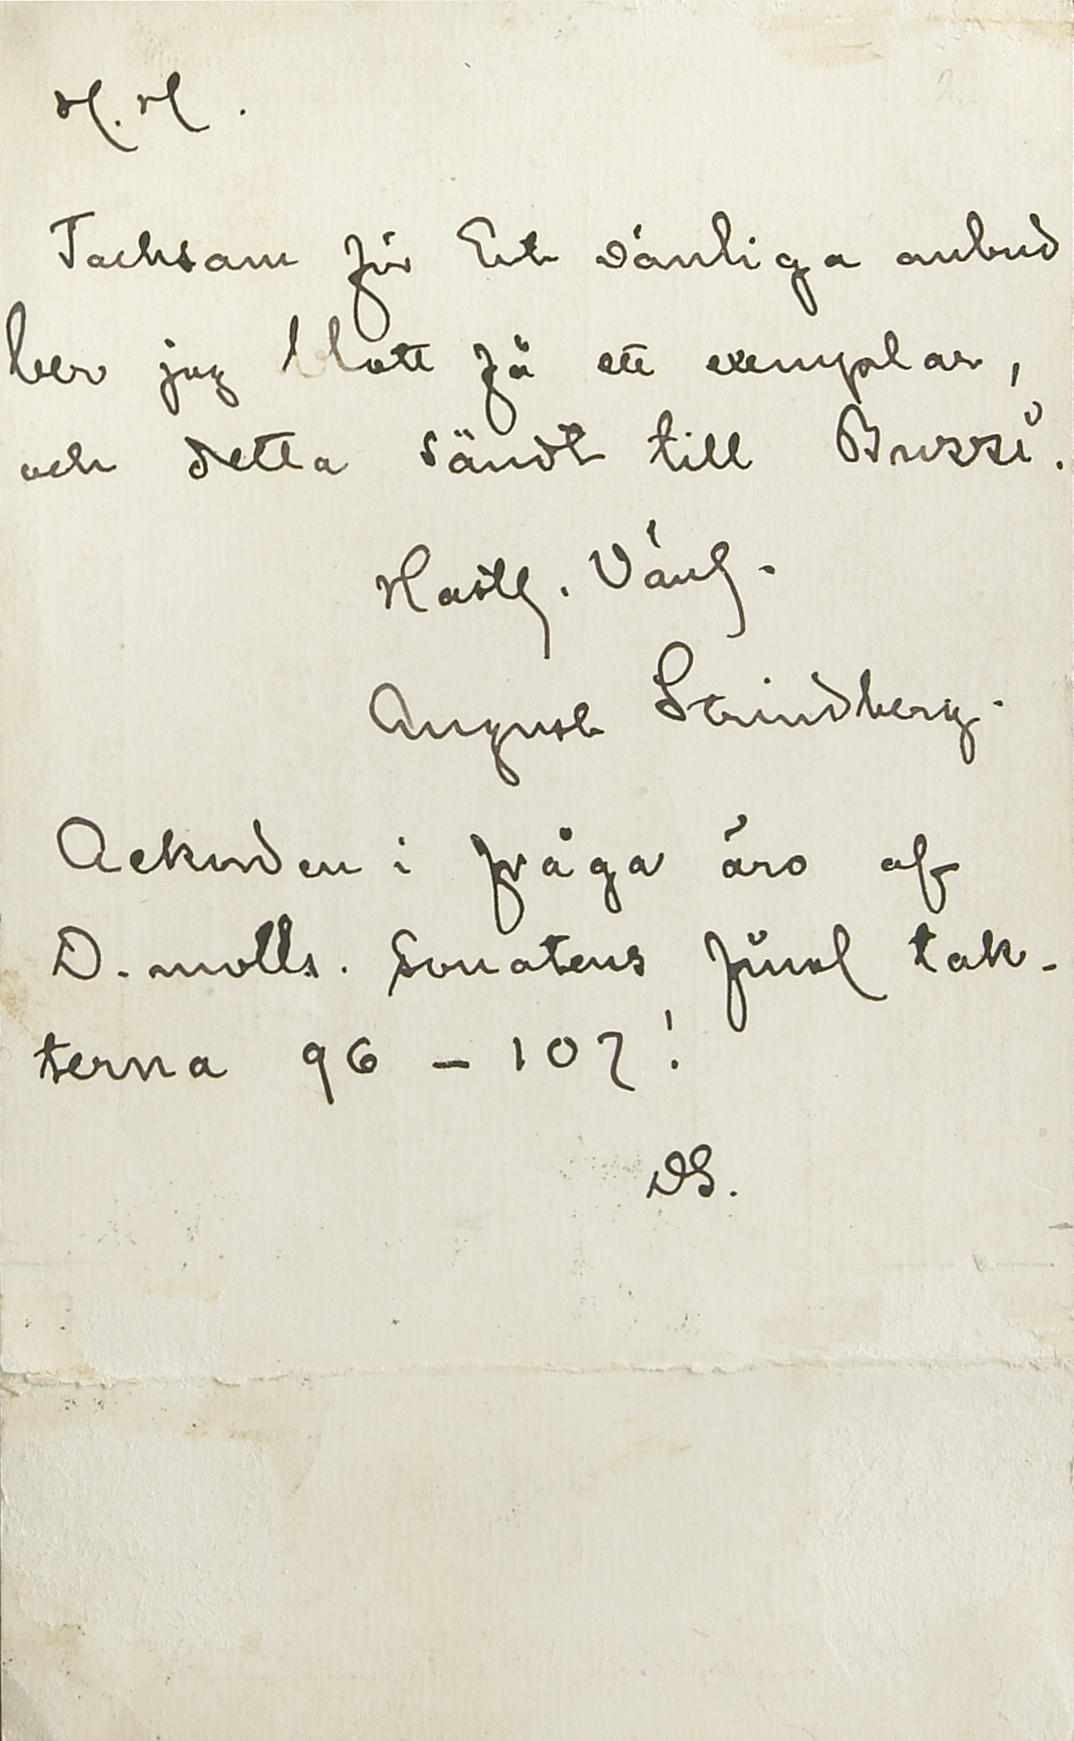 H. H.
Tacksam för Ert vänliga anbud
ber jag blott få ett exemplar,
och detta sändt till
Hastg. Vänl.
August Strindberg.
Ackorden i fråga äro af
D. molls. Sonatens final tak-
terna 96 – 107!
DS.